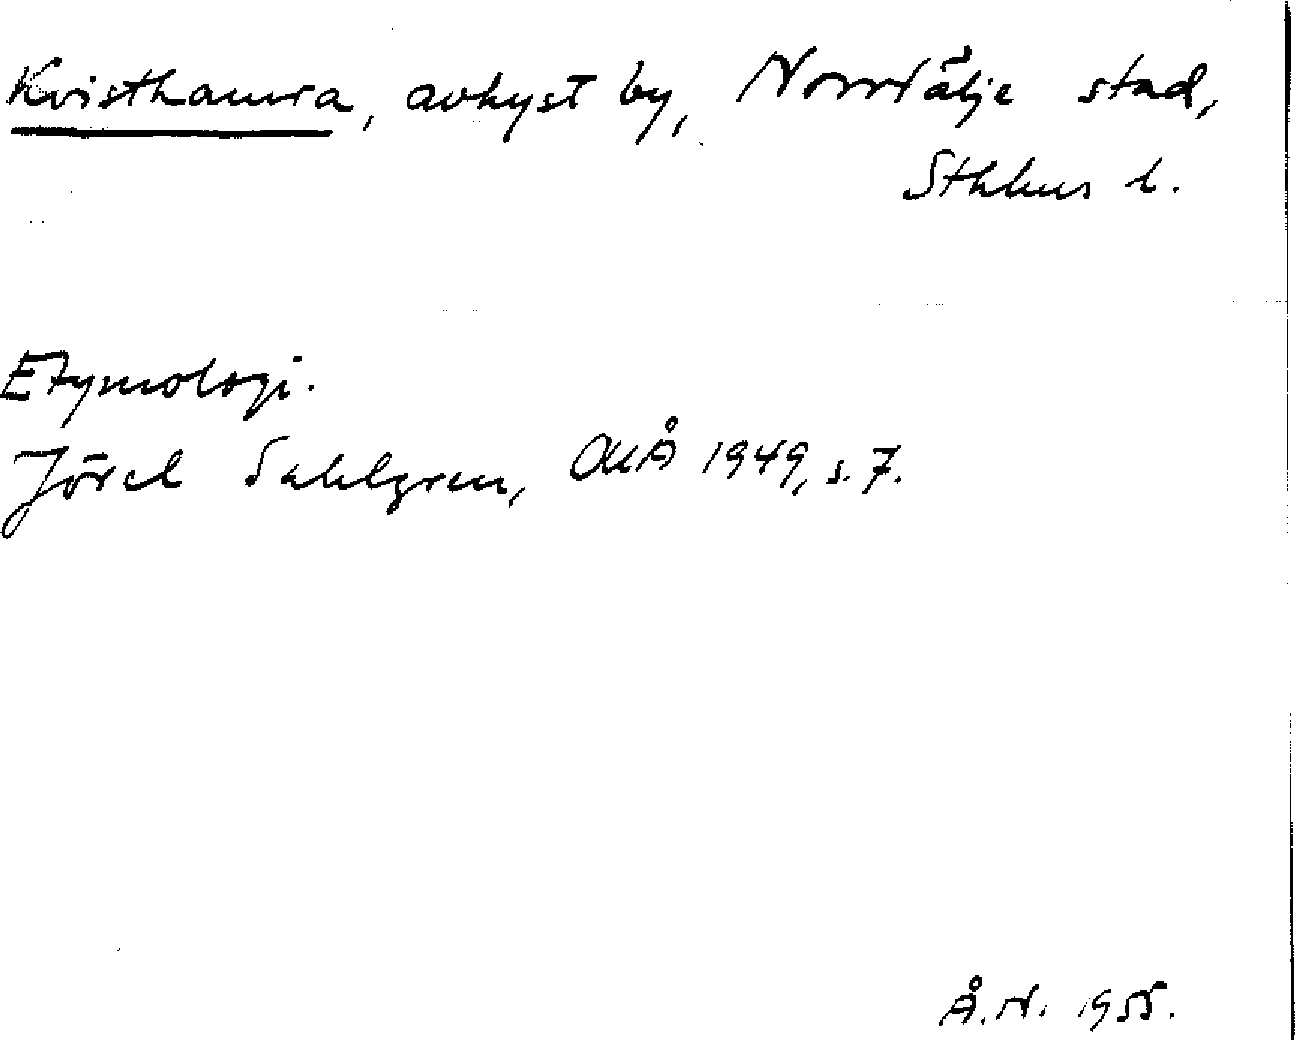 Kvisthamra, avhyst by, Norrtälje stad,
Sthlms l.
Etymologi.
Jöran Sahlgren, OUÅ 1949, s. 7.
Å.N. 1955.